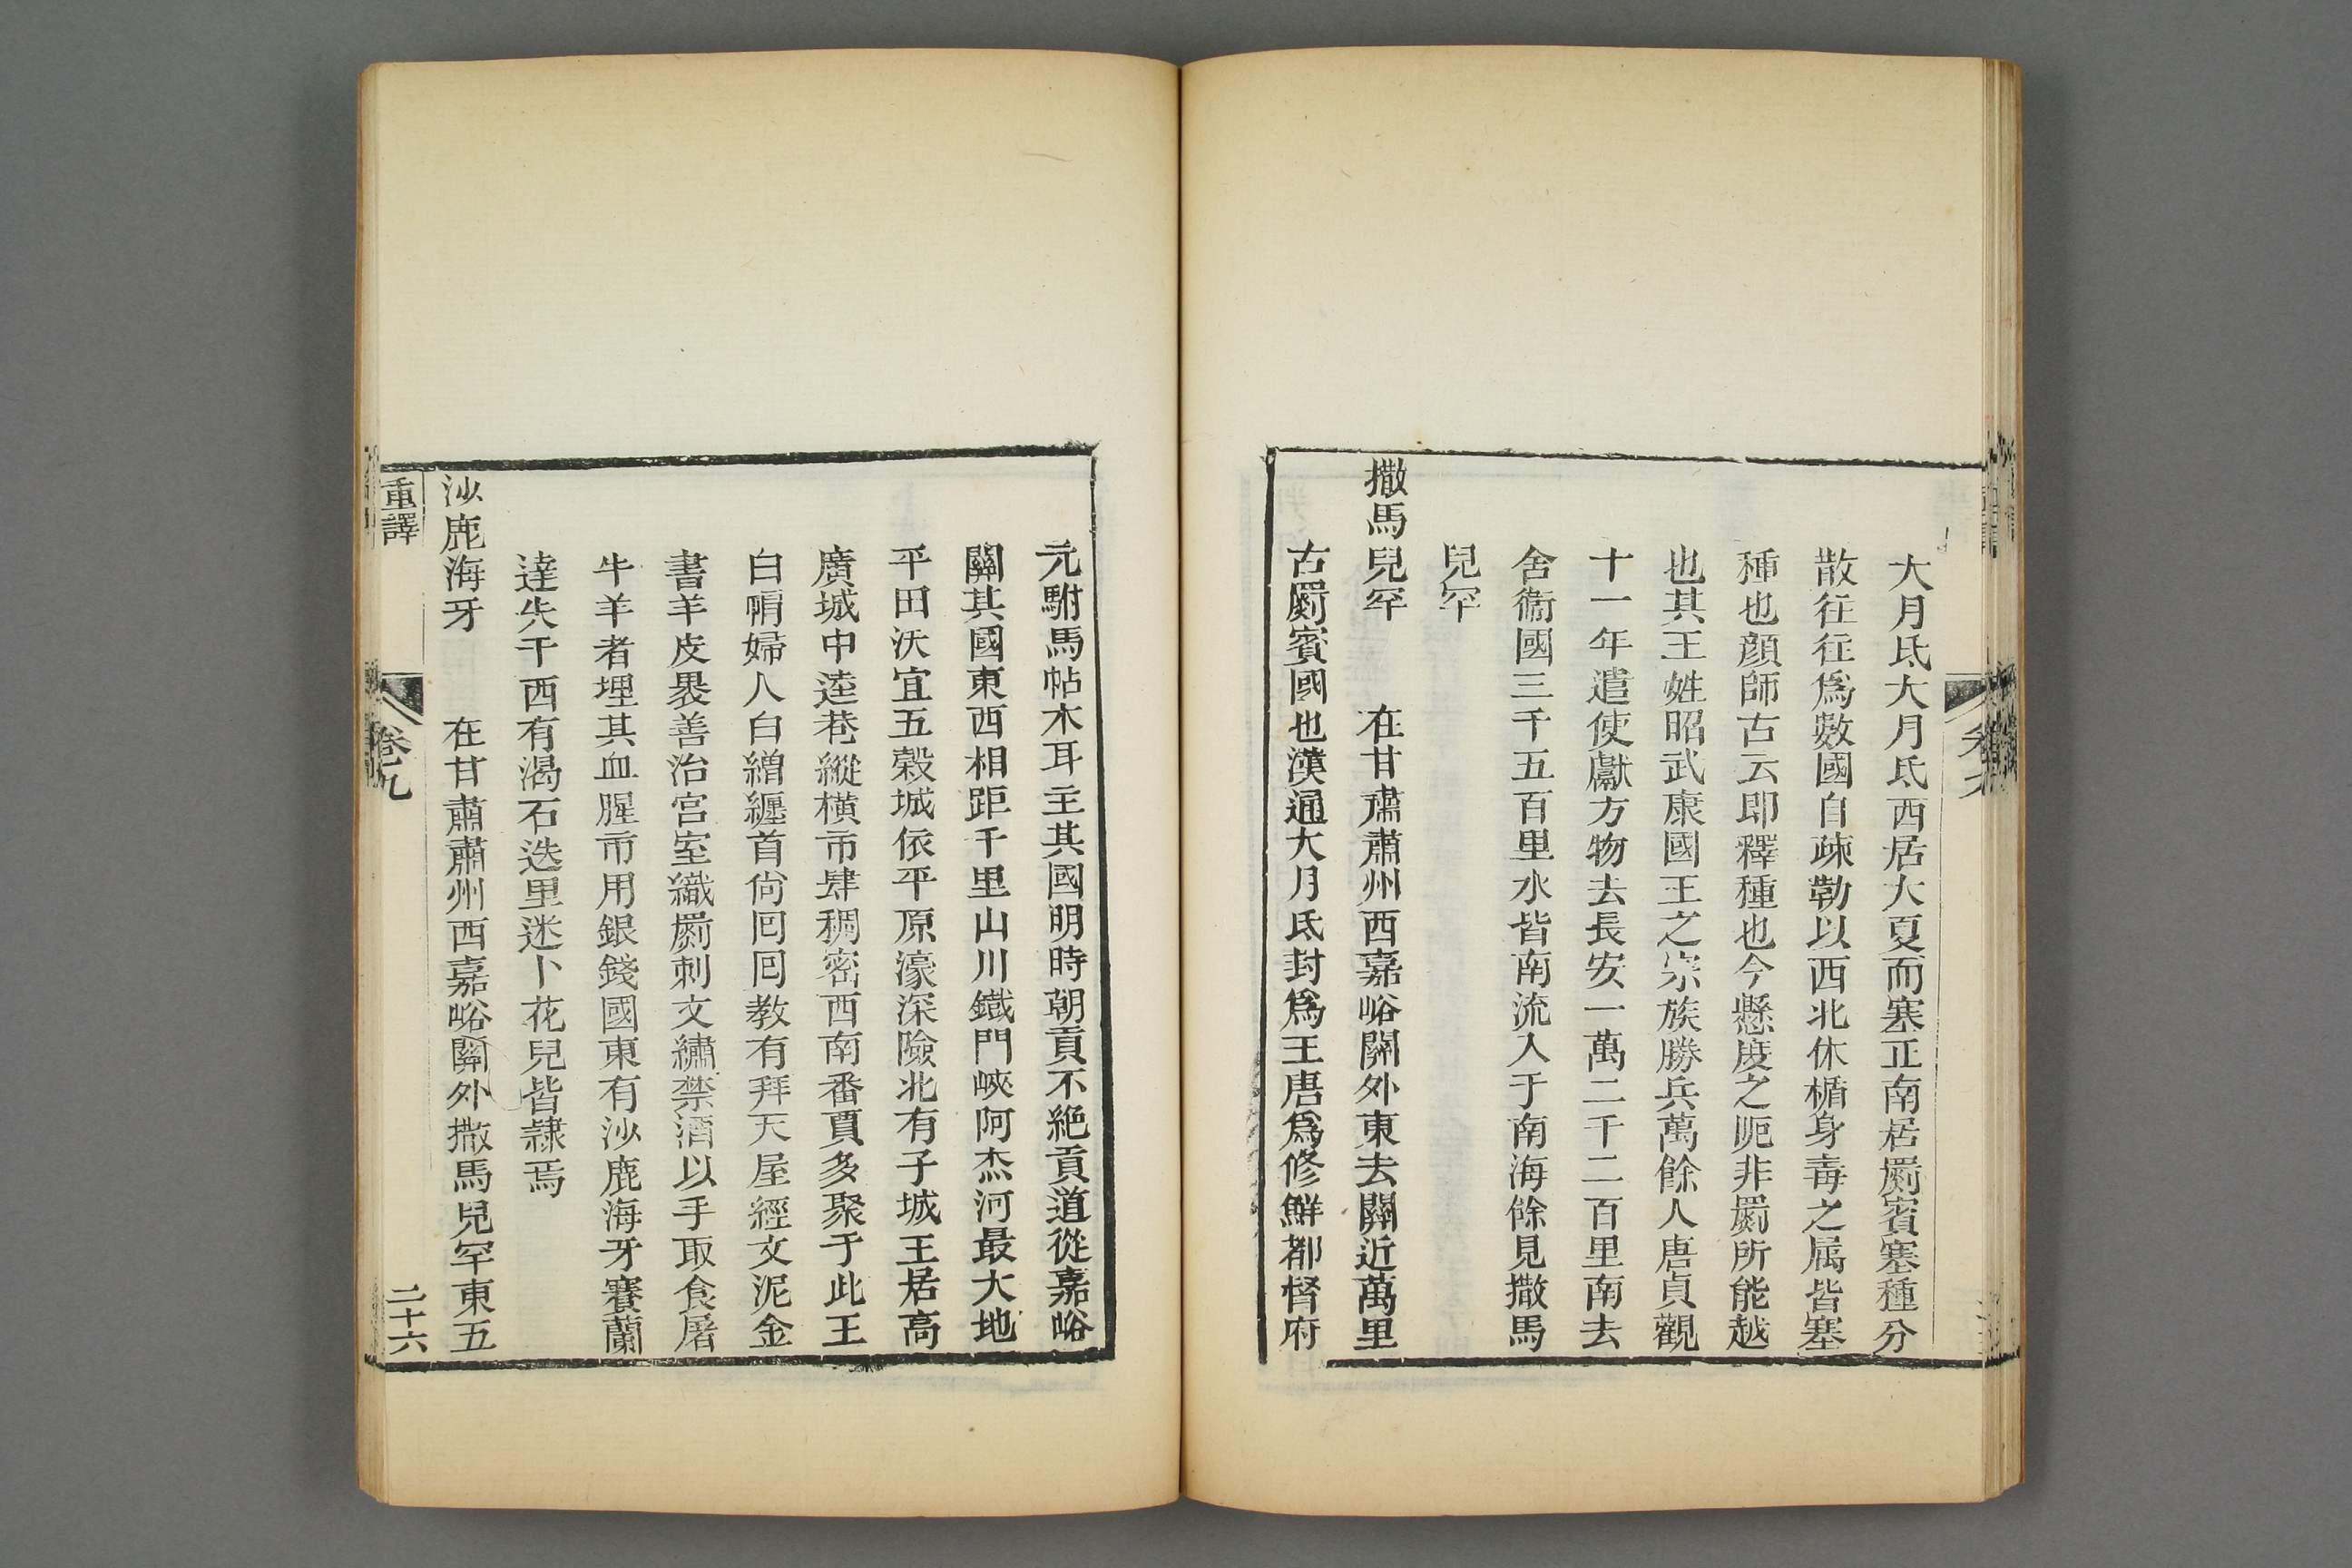 大月氐大月氐西居大夏而塞正南居罽賓塞種分
散往往爲數國自疎勒以西北休楯身毒之属皆塞
種也顔師古云即釋種也今懸度之阨非罽所能越
也其王姓昭武康國王之宗族勝兵萬餘人唐貞觀
十一年遣使獻方物去長安一萬二千二百里南去
舍衞國三千五百里水皆南流入于南海餘見撒馬
兒罕
撒馬兒罕 在甘肅肅州西嘉峪關外東去關近萬里
古罽賓國也漢通大月氐封爲王唐爲修鮮都督府
元駙馬帖木耳主其國明時朝貢不絶貢道從嘉峪
關其國東西相距千里山川鐵門峽阿杰河最大地
平田沃宜五榖城依平原濠深險北有子城王居高
廣城中逵巷縱横市肆稠密西南番賈多聚于此王
白㡌婦人白繒纒首尙囘囘教有拜天屋經文泥金
書羊皮褁善治宫室織罽刺文繡禁酒以手取食屠
牛羊者埋其血腥市用銀錢國東有沙鹿海牙賽蘭
達失干西有渴石迭里迷卜花兒皆隷焉
沙鹿海牙 在甘肅肅州西嘉峪關外撒馬兒罕東五
重譯 卷九 二十六